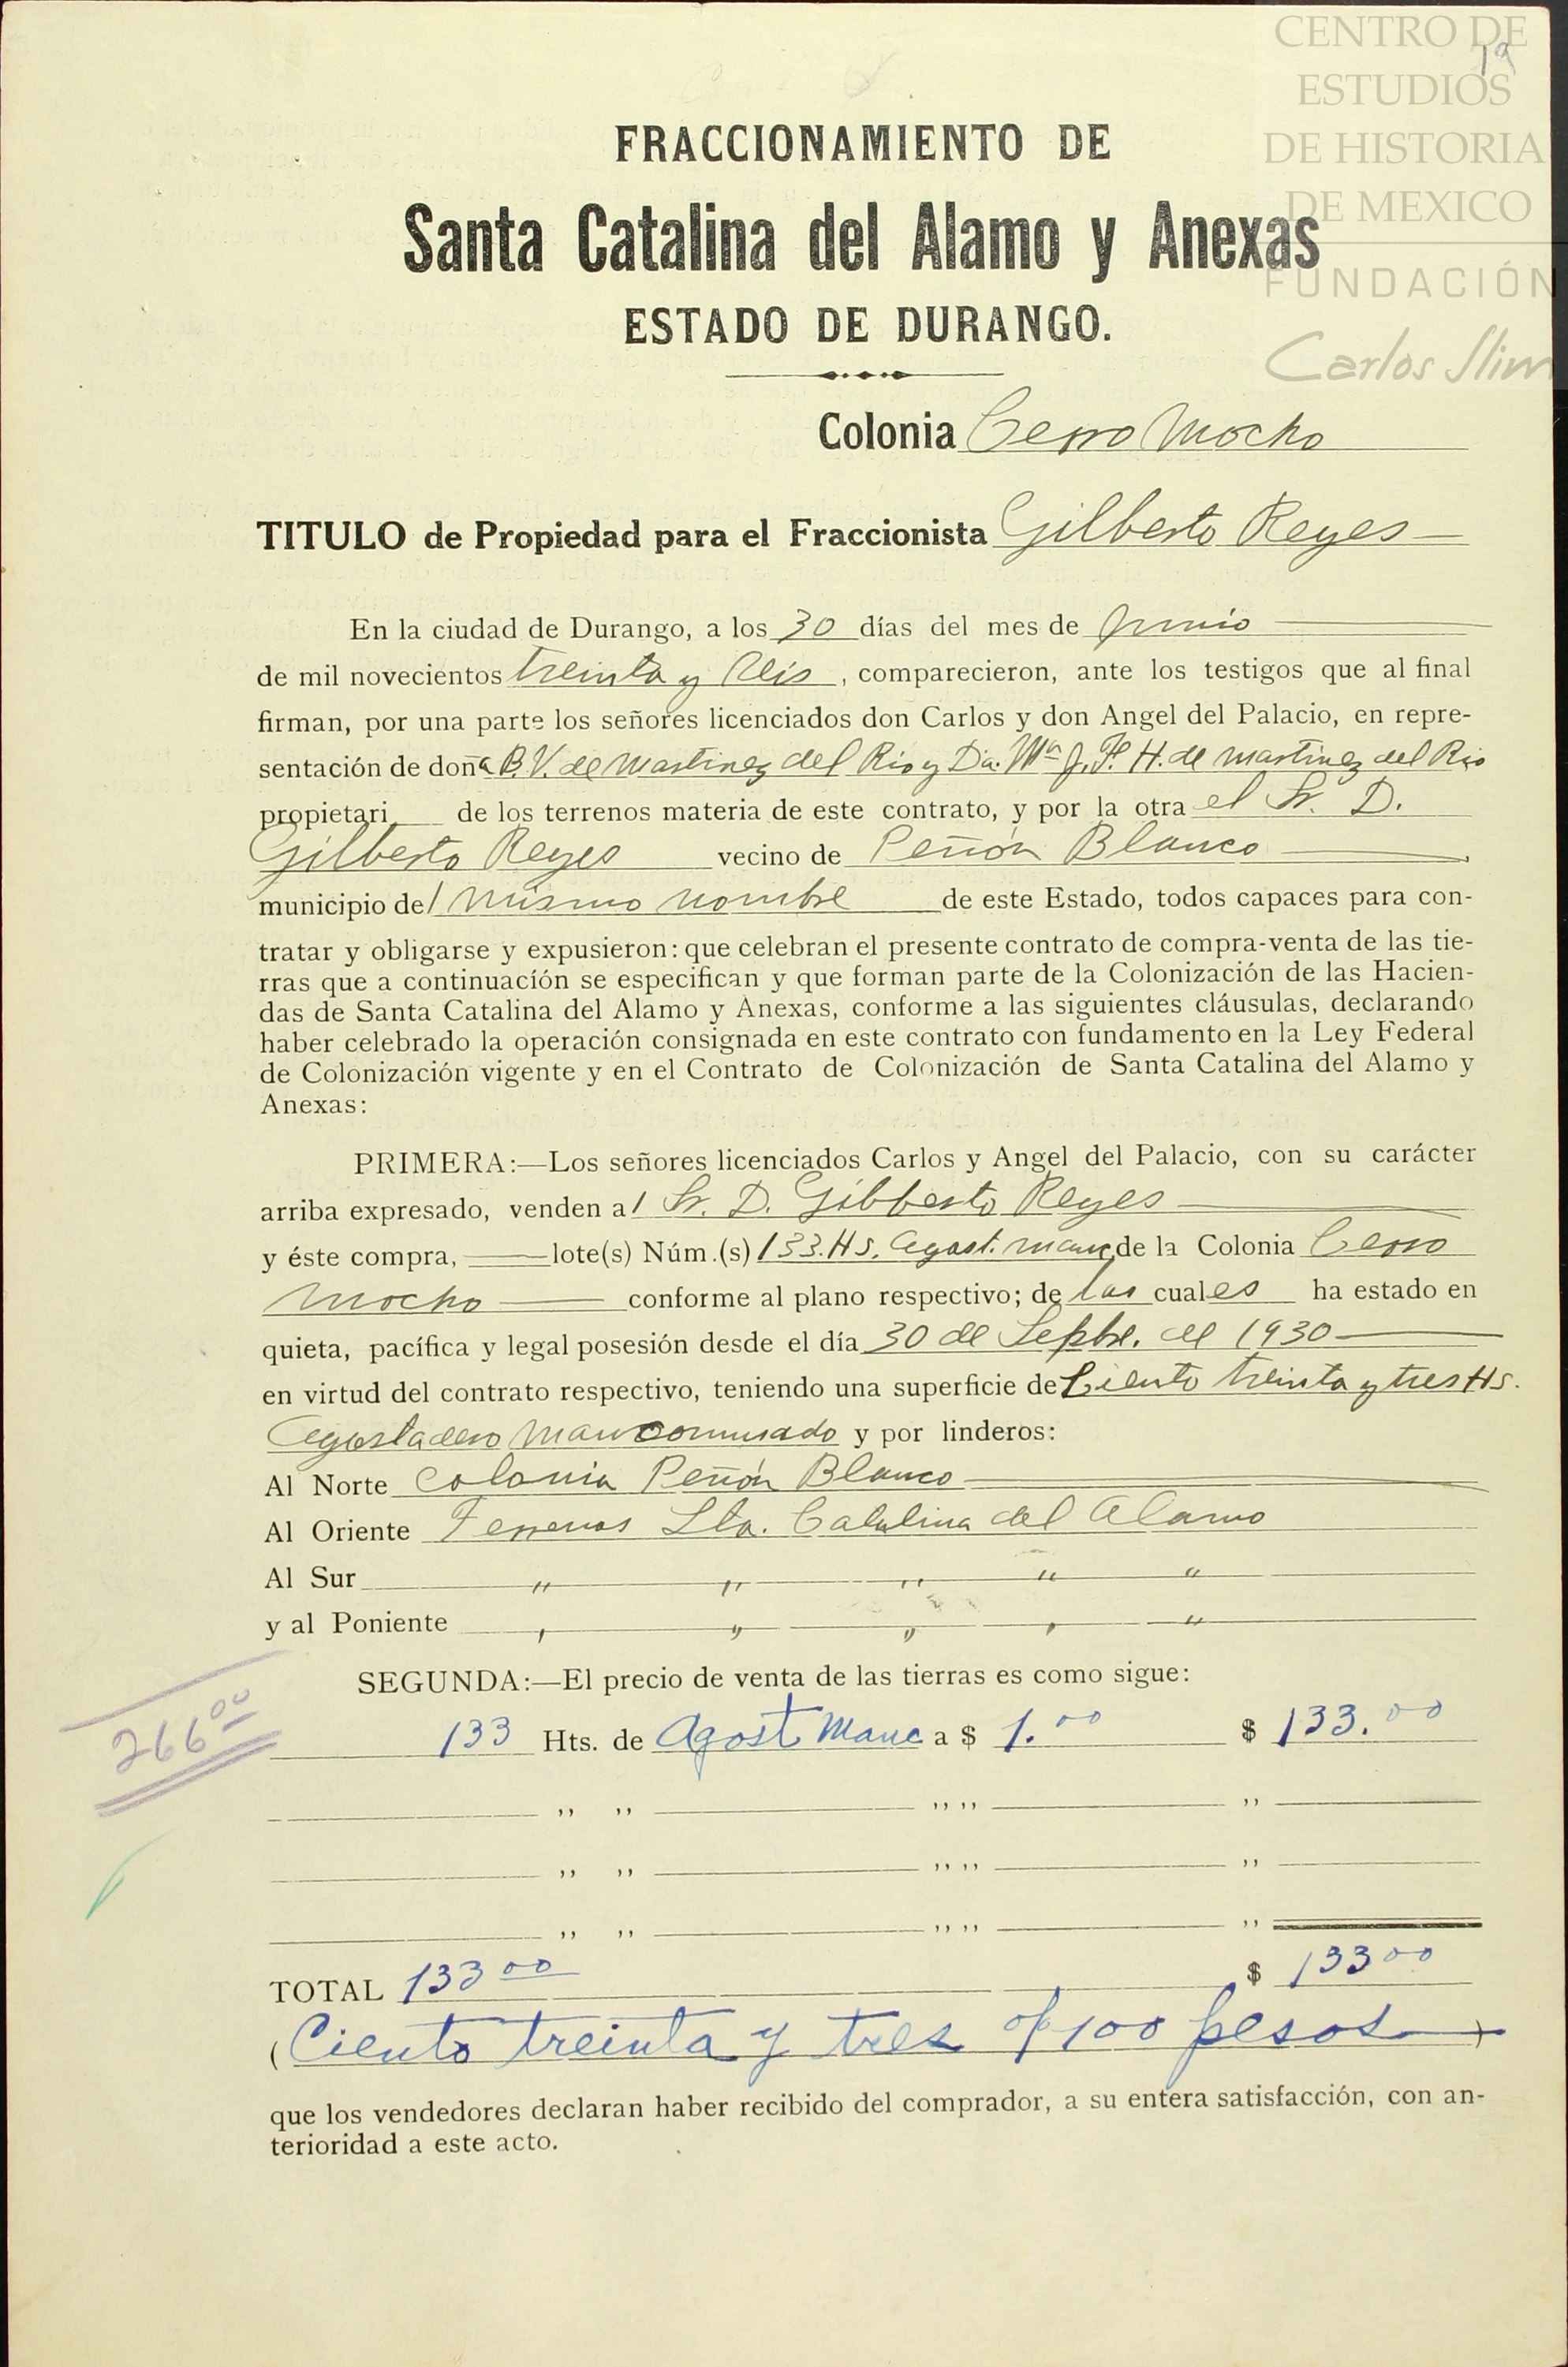 CENTRO DE
ESTUDIOS
DE HISTORIA
DE MEXICO
FUNDACIÓN
Carlos Slim
FRACCIONAMIENTO DE
Santa Catalina del Alamo y Anexas
ESTADO DE DURANGO.
Colonia Cerro Mocho
TITULO de Propiedad para el Fraccionista Gilberto Reyes
En la ciudad de Durango, a los 30 días del mes de Junio
de mil novecientos treinta y seis, comparecieron, ante los testigos que al final
firman, por una parte los señores licenciados don Carlos y don Angel del Palacio, en repre-
sentación de doña B. V. de Martinez del Rio y Da. Ma. J. F. H. de Martinez del Rio
propietari de los terrenos materia de este contrato, y por la otra el Sr. D.
Gilberto Reyes vecino de Peñón Blanco
municipio del mismo nombre de este Estado, todos capaces para con-
tratar y obligarse y expusieron: que celebran el presente contrato de compra-venta de las tie-
rras que a continuacíón se especifican y que forman parte de la Colonización de las Hacien-
das de Santa Catalina del Alamo y Anexas, conforme a las siguientes cláusulas, declarando
haber celebrado la operación consignada en este contrato con fundamento en la Ley Federal
de Colonización vigente y en el Contrato de Colonización de Santa Catalina del Alamo y
Anexas:
PRIMERA:—Los señores licenciados Carlos y Angel del Palacio, con su carácter
arriba expresado, venden al Sr. D. Gilberto Reyes
y éste compra, lote(s) Núm.(s) 133. Hs. Agost. manc. de la Colonia Cerro
Mocho conforme al plano respectivo; de las cuales ha estado en
quieta, pacífica y legal posesión desde el día 30 de Sepbre. de 1930
en virtud del contrato respectivo, teniendo una superficie de Ciento treinta y tres Hs.
Agostadero Mancomunado y por linderos:
Al Norte Colonia Peñón Blanco
Al Oriente Terrenos Sta. Catalina del Alamo
Al Sur " " " " "
y al Poniente " " " " "
SEGUNDA:—El precio de venta de las tierras es como sigue:
266.00
133 Hts. de Agost Manc a $ 1.00 $ 133.00
,, ,, ,, ,, ,,
,, ,, ,, ,, ,,
,, ,, ,, ,, ,,
TOTAL 133 00 $ 133 00
(Ciento treinta y tres 0/100 pesos)
que los vendedores declaran haber recibido del comprador, a su entera satisfacción, con an-
terioridad a este acto.